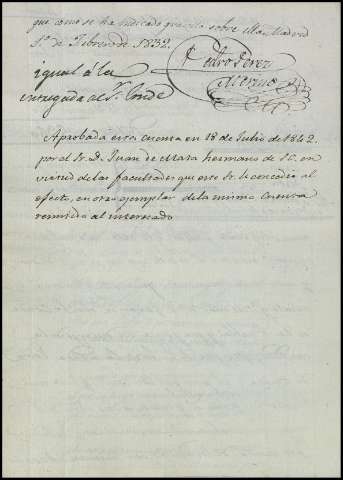 que como se ha indicado gravita sobre ella. Madrid
1º. de Febrero de 1832.
igual á la
entregada al Sr. Conde
Pedro Perez
Merino
Aprobada esta cuenta en 18 de Julio de 1842.
por el Sr. D. Juan de hermano de S. E. en
virtud de las facultades que este Sr. le concedio al
efecto, en otro ejemplar de la misma cuenta
remitida al interesado